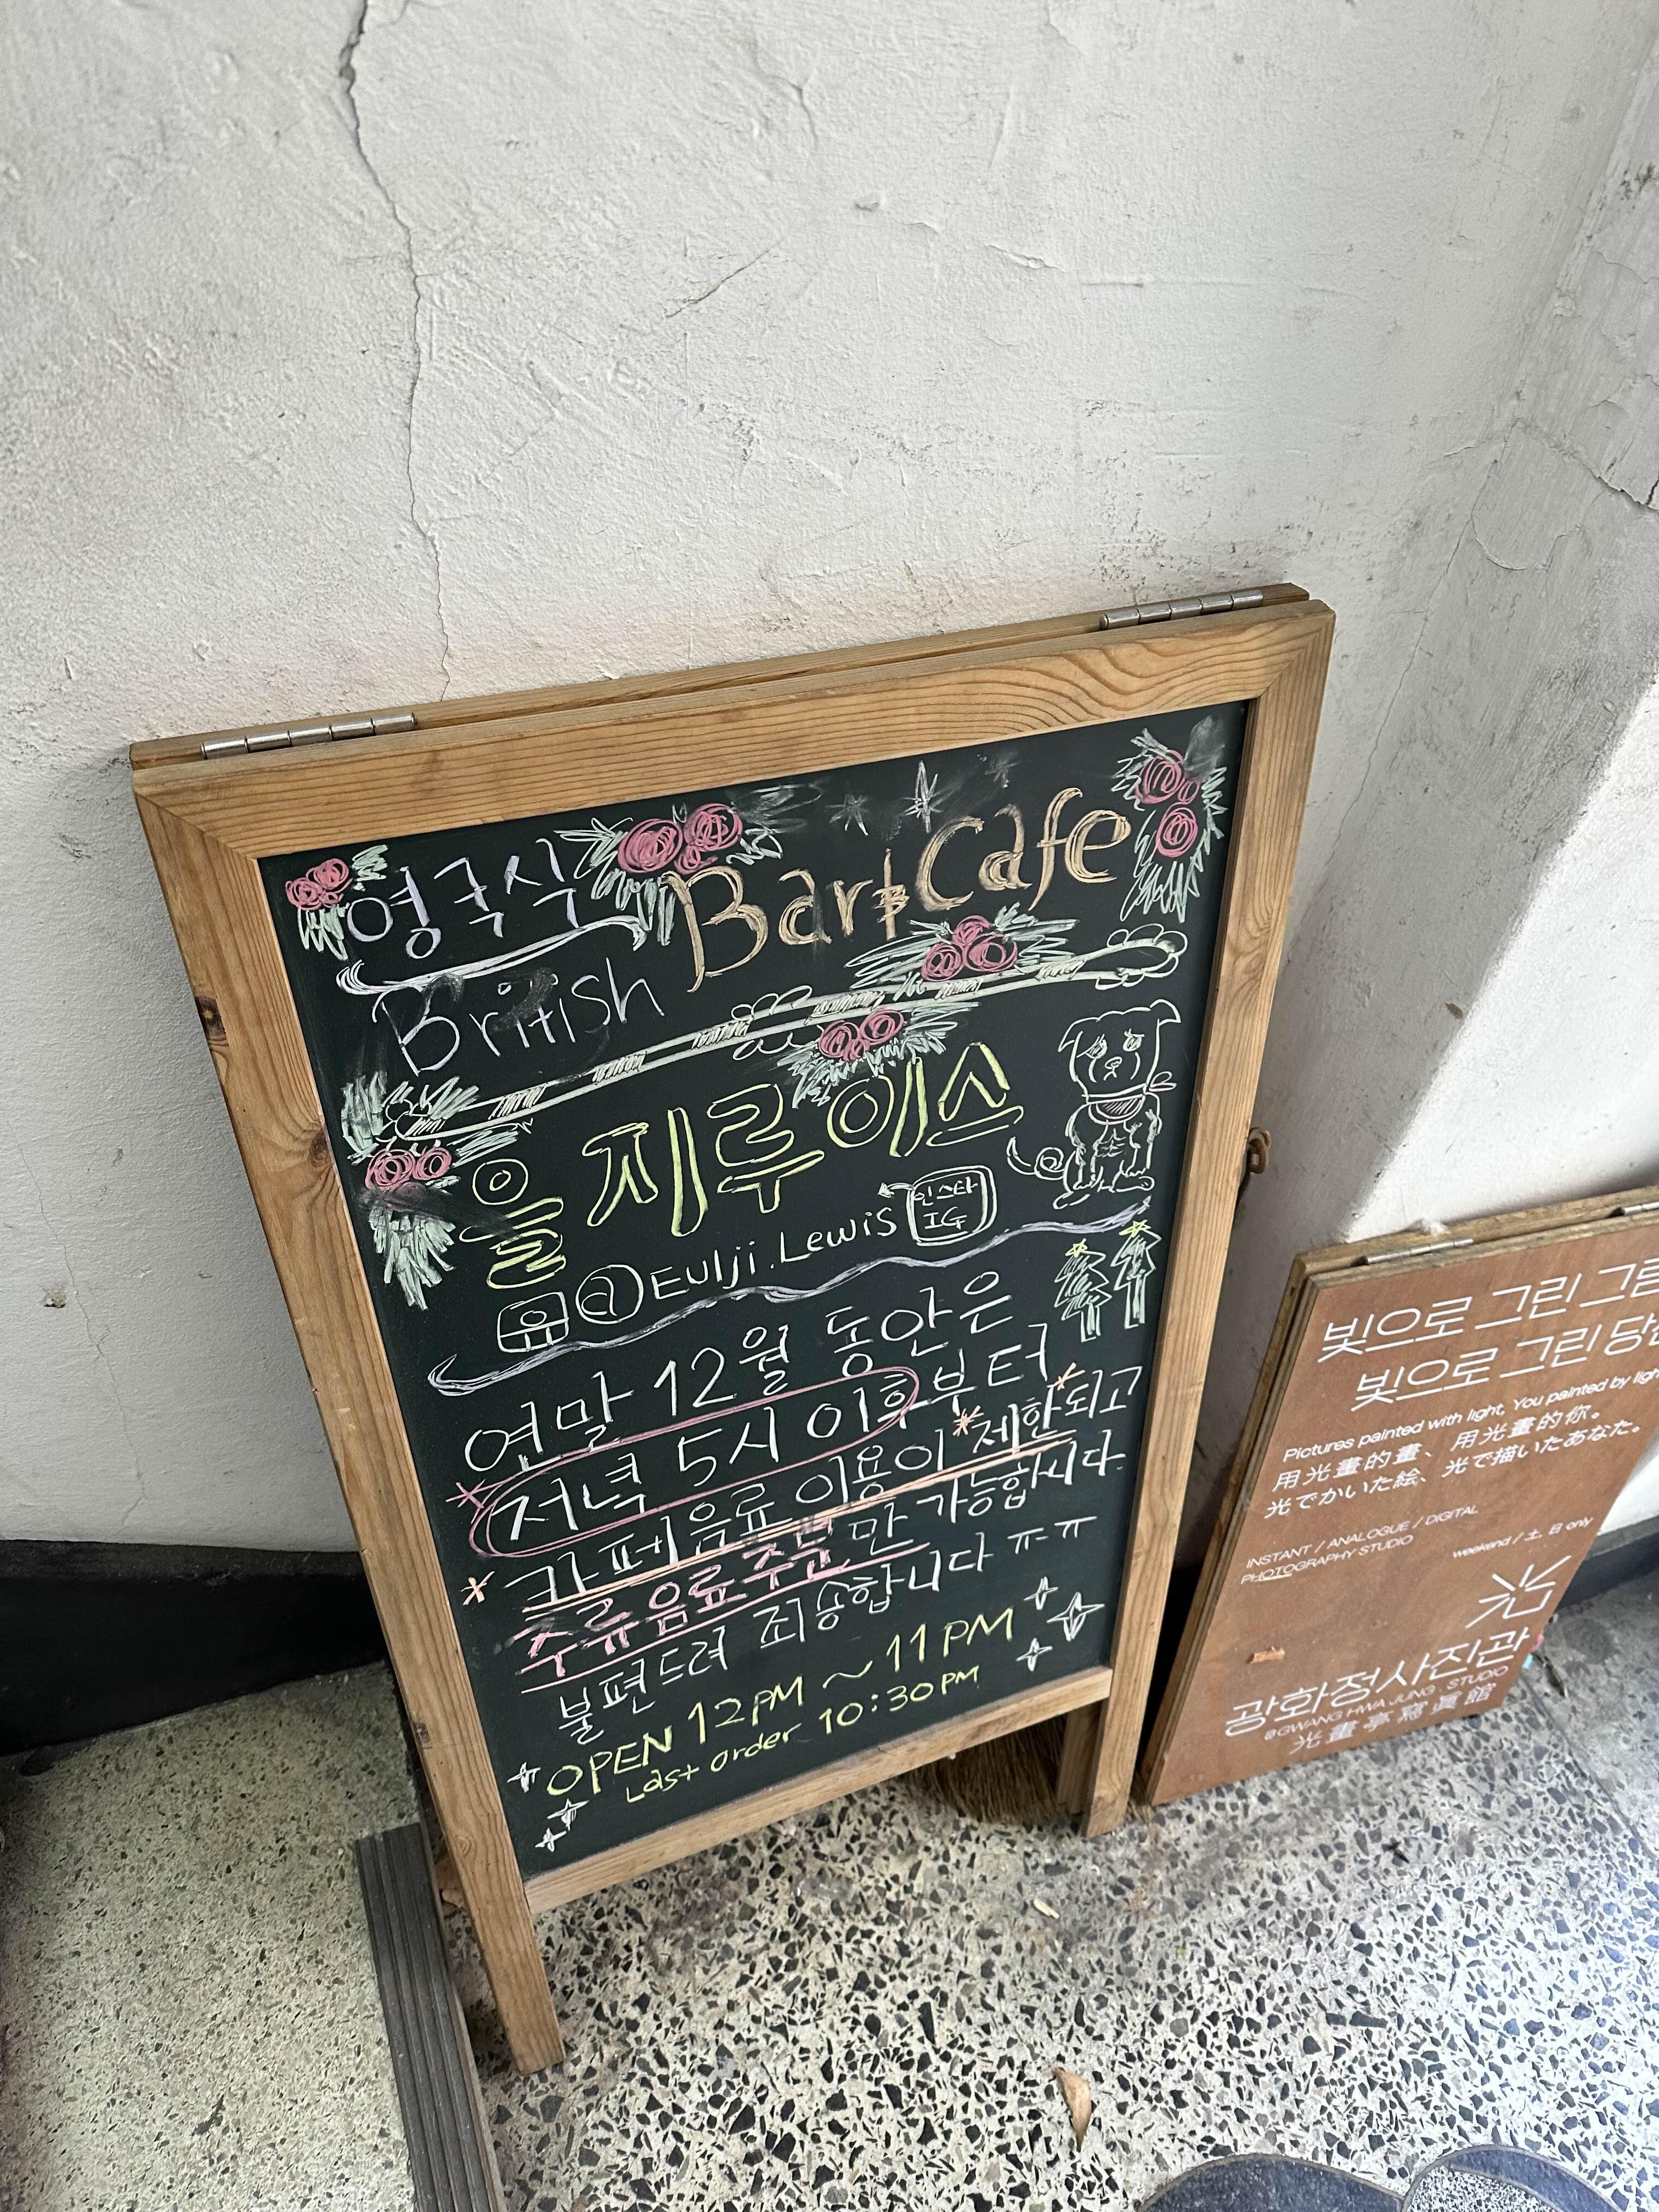 영국식 Bar & Cafe
British
을지루이스
@Eulji.Lewis 인스타
IG
연말 12월 동안은
* 저녁 5시 이후부터
* 카페음료 이용이 * 제한* 되고
주류음료주문만 가능합니다
불편드려 죄송합니다 ㅠㅠ
OPEN 12PM ~ 11PM
Last order 10:30PM
빛으로 그린 그림
빛으로 그린 당신
Pictures painted with light, You painted by light
用光畫的畫、用光畫的你。
光でかいた絵、光で描いたあなた。
INSTANT / ANALOGUE / DIGITAL
PHOTOGRAPHY STUDIO
weekend / 土, 日 only
光
광화정사진관
@GWANG HWA JUNG . STUDIO
光畫亭寫眞館